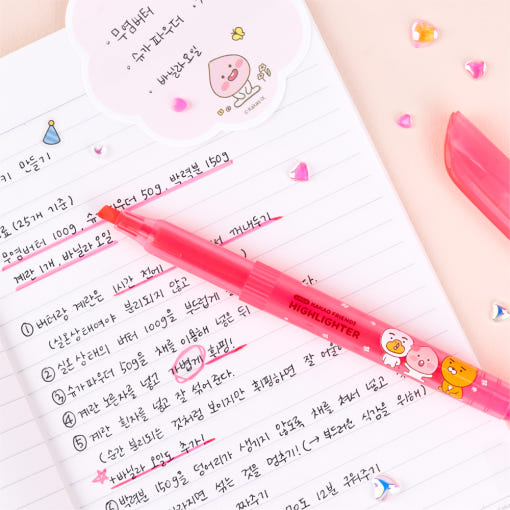 무염버터
슈가파우더
바닐라오일
©KAKAO IX
키 만들기
료 (25개 기준)
무염버터 100g, 슈가파우더 50g, 박력분 150g
계란 1개, 바닐라오일
① 버터랑 계란은 1시간 전에 꺼내두기
(실온상태여야 분리되지 않고
② 실온상태의 버터 100g을 부드럽게
③ 슈가파우더 50g을 체를 이용해 넣은 뒤
④ 계란 노른자를 넣고 가볍게 휘핑!
⑤ 계란 흰자를 넣고 잘 섞어준다.
(순간 분리되는 것처럼 보이지만 휘핑하면 잘
+바닐라 오일도 추가!
⑥ 박력분 150g을 덩어리가 생기지 않도록 체를 쳐서 넣고
섞는 것을 멈추기! (→ 부드러운 식감을 위해)
짜주기
12분 구워주기
KAKAO FRIENDS
HIGHLIGHTER